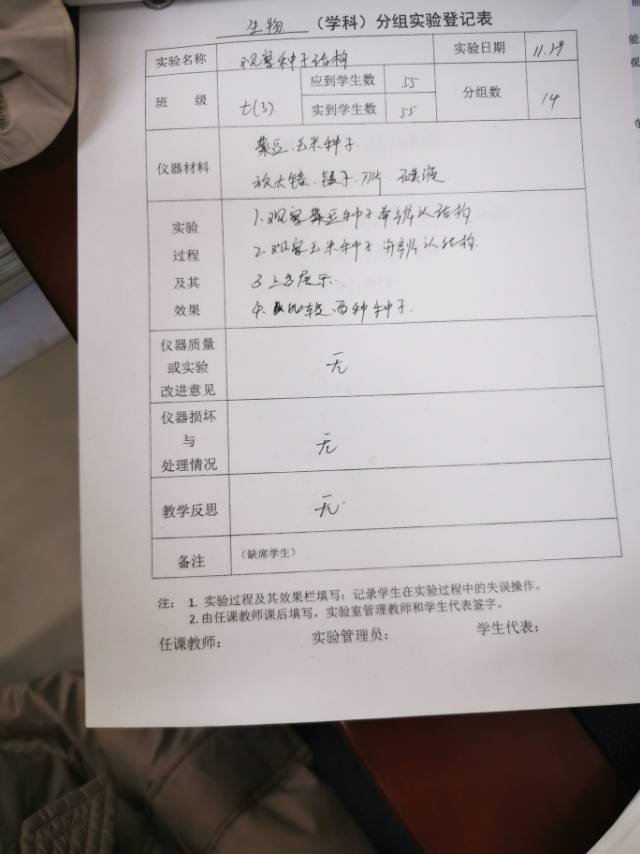 生物 (学科) 分组实验登记表
实验名称 观察种子结构 实验日期 11.19
班 级 七(3) 应到学生数 55 分组数 14
实到学生数 55
仪器材料 菜豆.玉米种子.
放大镜.镊子.刀片 碘液.
实验过程及其效果 1.观察菜豆种子并辨认结构
2.观察玉米种子并辨认结构.
3.上台展示.
4.比较两种种子.
仪器质量或实验改进意见 无
仪器损坏与处理情况 无
教学反思 无.
备注 (缺席学生)
注: 1. 实验过程及其效果栏填写:记录学生在实验过程中的失误操作。
2. 由任课教师课后填写,实验室管理教师和学生代表签字。
任课教师: 实验管理员: 学生代表: